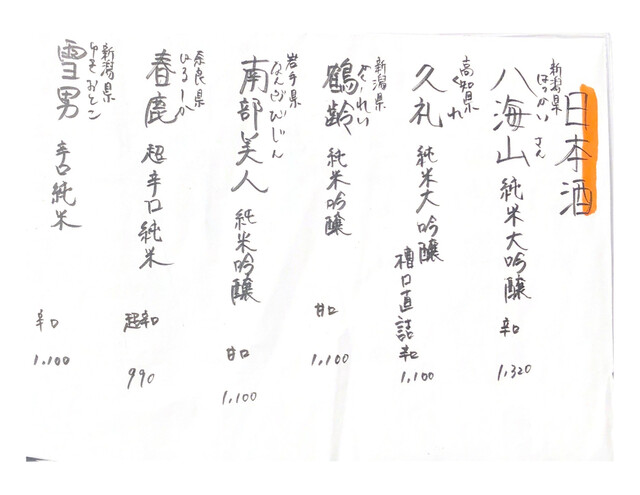 日本酒
新潟県
はっかいさん
八海山 純米大吟醸 辛口 1,320
高知県
くれ
久礼 純米大吟醸 槽口直詰 辛口 1,100
新潟県
かくれい
鶴齢 純米吟醸 甘口 1,100
岩手県
なんぶびじん
南部美人 純米吟醸 甘口 1,100
奈良県
はるしか
春鹿 超辛口純米 超辛口 990
新潟県
ゆきおとこ
雪男 辛口純米 辛口 1,100